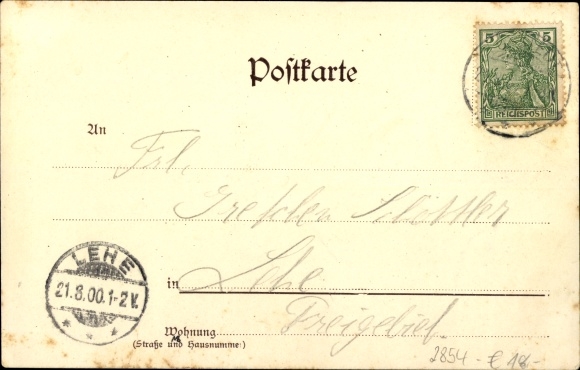 Postkarte
5 5
REICHSPOST
An
Frl.
Gretchen Schöttler
LEHE
21.8.00.1-2V.
in Lehe
Freigebiet
Wohnung
(Straße und Hausnummer)
2854 - € 18,-